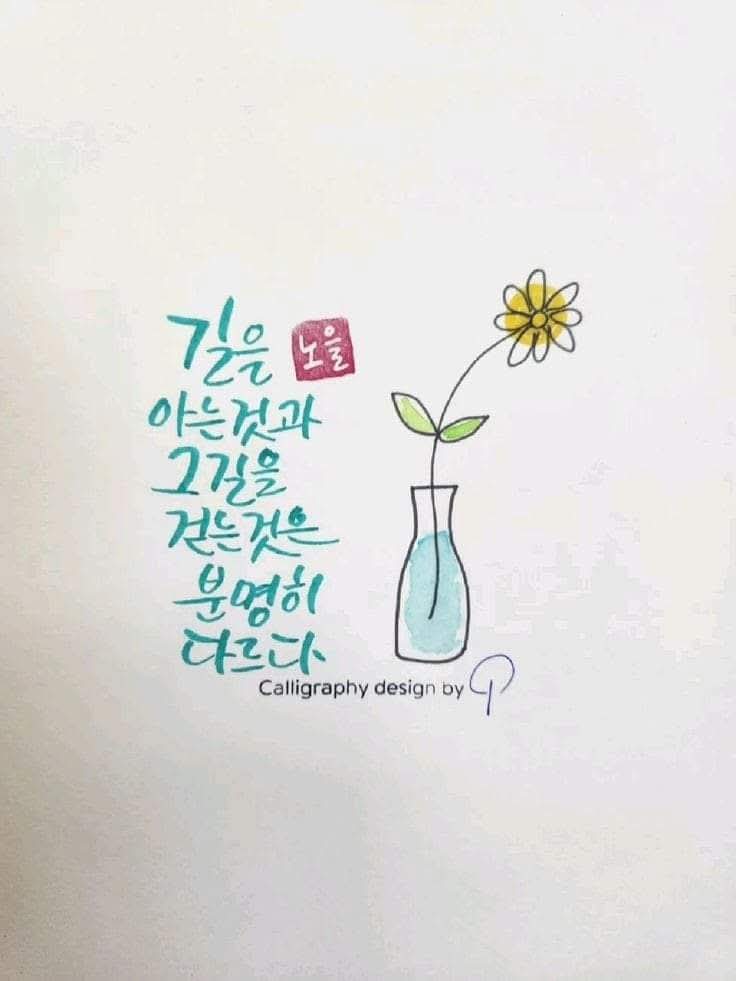 길은
노을
아는것과
그길을
걷는것은
분명히
다르다.
Calligraphy design by